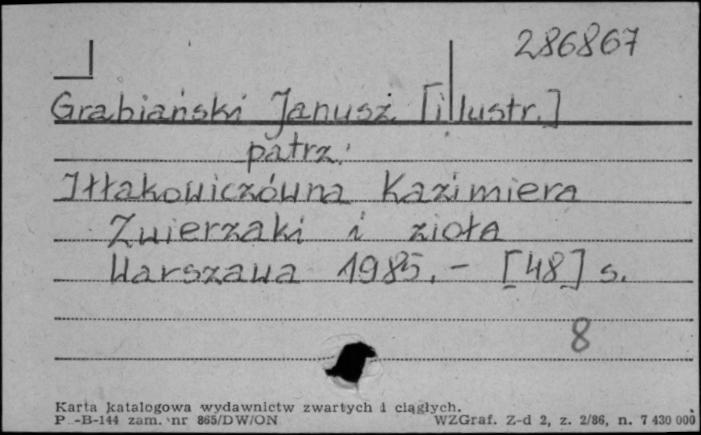 286867
Grabiański Janusz [illustr.]
patrz:
Iłłakowiczówna Kazimiera
Zwierzaki i zioła
Warszawa 1985. - [48] s.
8
Karta katalogowa wydawnictw zwartych i ciągłych.
P.-B-144 zam. nr 865/DW/ON WZGraf. Z-d 2, z. 2/86, n. 7 430 000